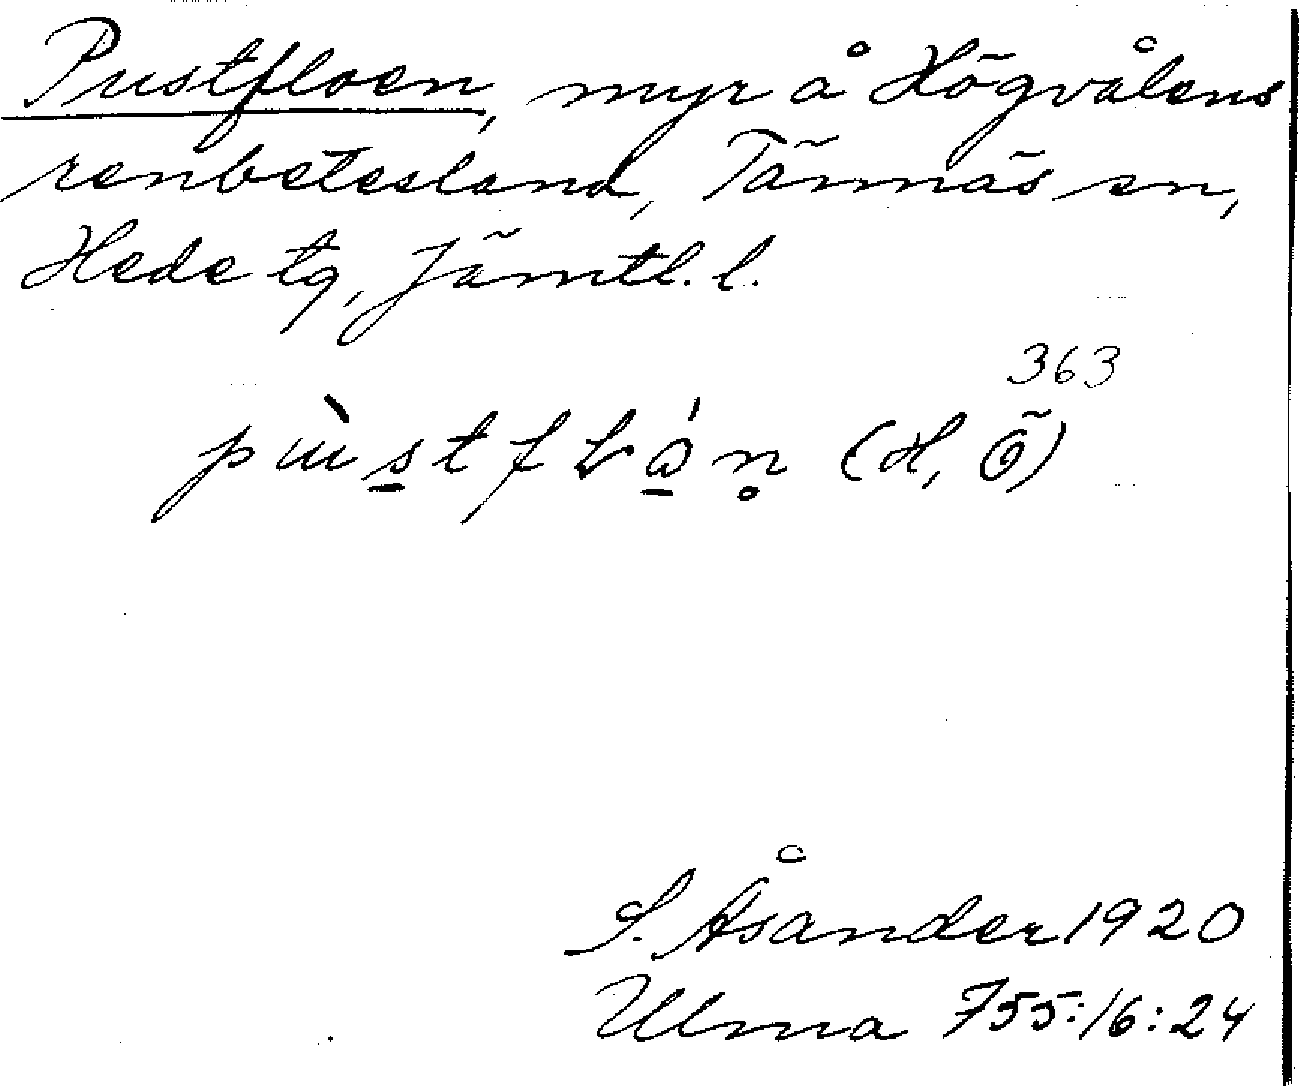 Pustfloen, myr å Högvålens
renbetesland, Tännäs sn,
Hede tg, Jämtl. l.
363
(H, Ö)
S. Åsander 1920
Ulma 755:16:24